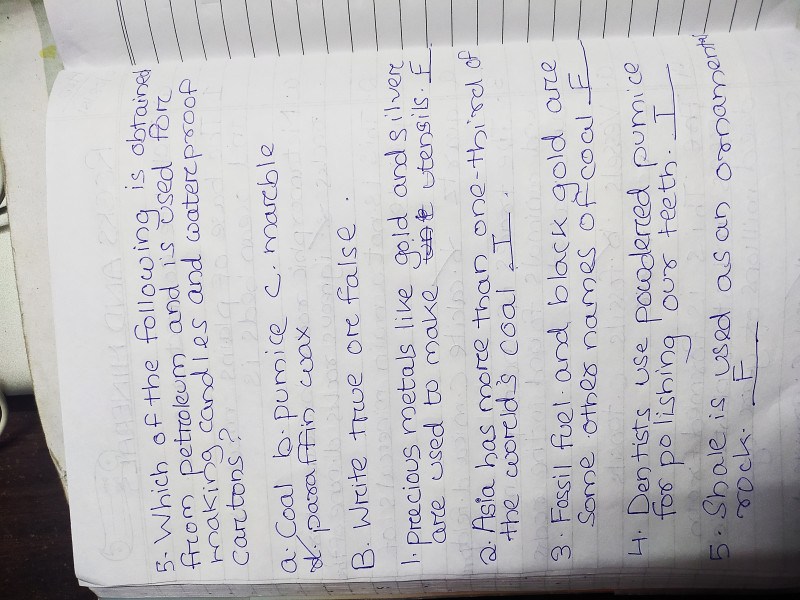 5. Which of the following is obtained
from petroleum and is used for
making candles and waterproof
cartons?
a. Coal b. pumice c. marble
d. paraffin wax
B. Write true or false.
1. Precious metals like gold and silver
are used to make utensils. F
2. Asia has more than one-third of
the world's coal. T
3. Fossil fuel and black gold are
some other names of coal F
4. Dentists use powderred pumice
for polishing our teeth. T
5. Shale is used as an ornamental
rock. F